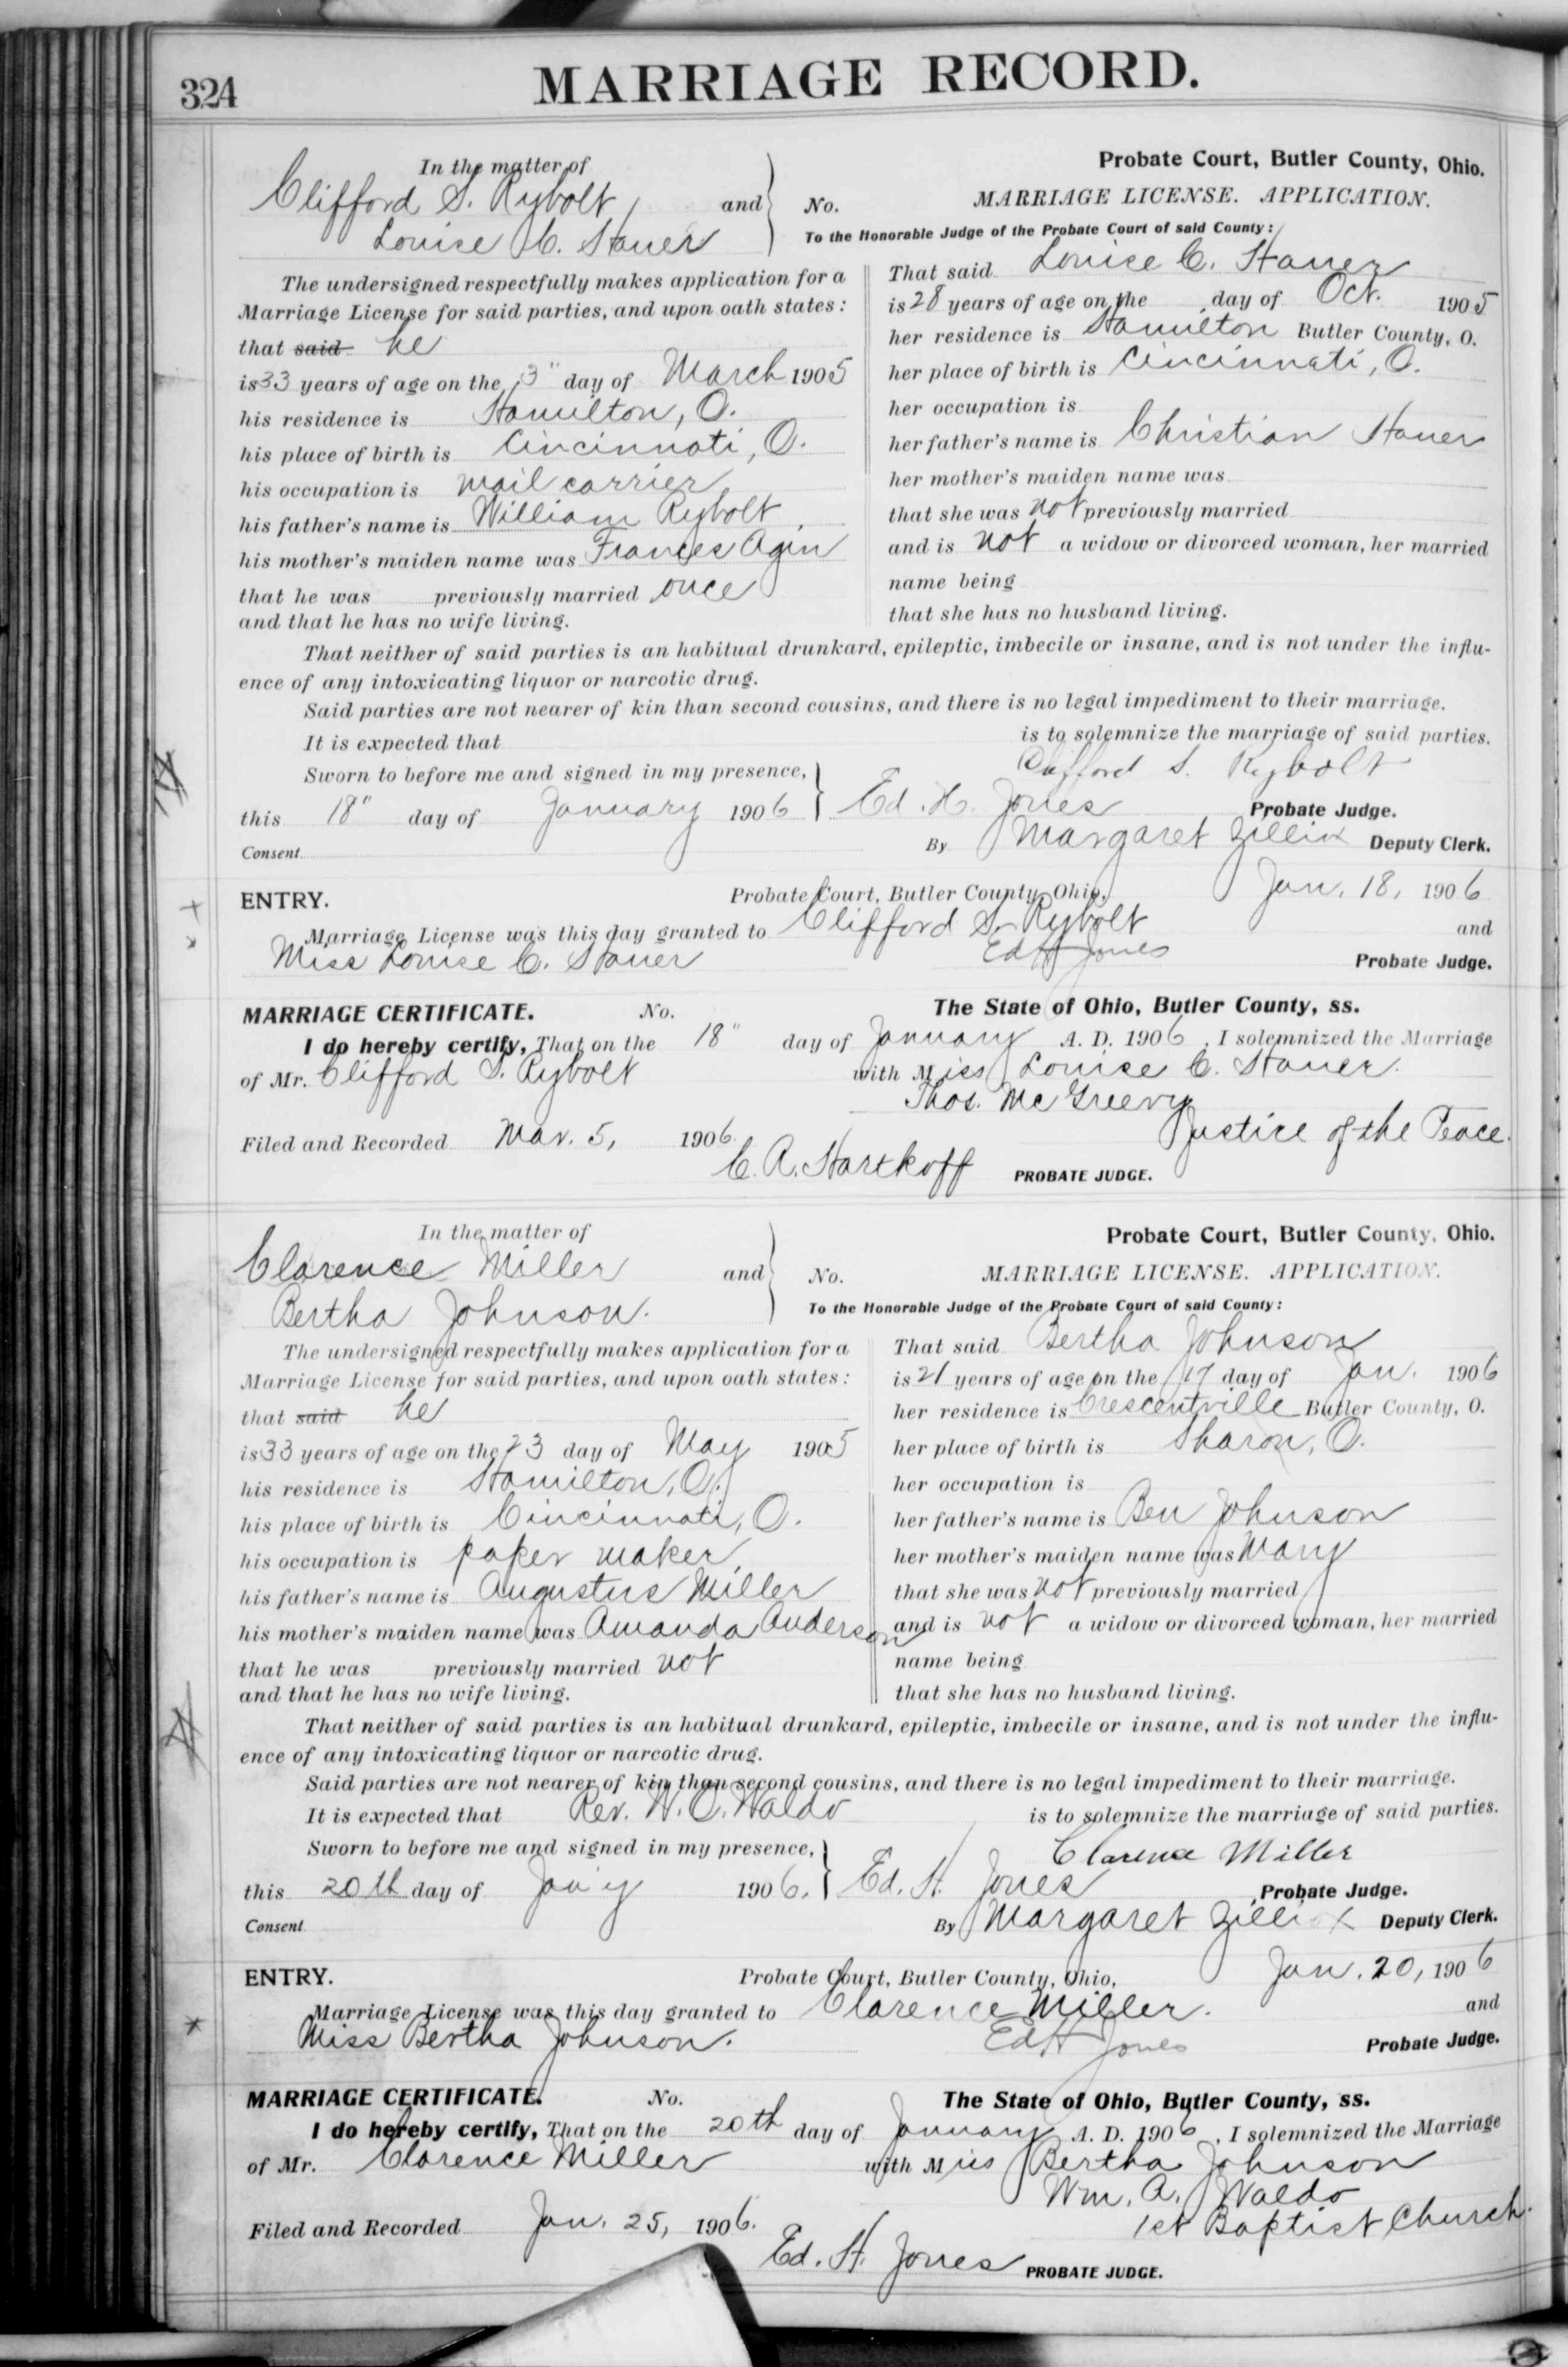 324
MARRIAGE RECORD.
In the matter of
Clifford S. Rybolt and
Louise C. Hauer
No.
Probate Court, Butler County, Ohio.
MARRIAGE LICENSE. APPLICATION.
To the Honorable Judge of the Probate Court of said County:
The undersigned respectfully makes application for a
Marriage License for said parties, and upon oath states:
that said he
is 33 years of age on the 3" day of March 1905
his residence is Hamilton, O.
his place of birth is Cincinnati, O.
his occupation is mail carrier
his father's name is William Rybolt
his mother's maiden name was Frances Agin
that he was previously married once
and that he has no wife living.
That said Louise C. Hauer
is 28 years of age on the day of Oct. 1905
her residence is Hamilton Butler County, O.
her place of birth is Cincinnati, O.
her occupation is
her father's name is Christian Hauer
her mother's maiden name was
that she was not previously married
and is not a widow or divorced woman, her married
name being
that she has no husband living.
That neither of said parties is an habitual drunkard, epileptic, imbecile or insane, and is not under the influ-
ence of any intoxicating liquor or narcotic drug.
Said parties are not nearer of kin than second cousins, and there is no legal impediment to their marriage.
It is expected that is to solemnize the marriage of said parties.
Clifford S. Rybolt
Sworn to before me and signed in my presence,
this 18" day of January 1906 Ed. H. Jones Probate Judge.
Consent By Margaret Zillix Deputy Clerk.
ENTRY. Probate Court, Butler County, Ohio, Jan. 18, 1906
Marriage License was this day granted to Clifford S. Rybolt and
Miss Louise C. Hauer Ed H Jones Probate Judge.
MARRIAGE CERTIFICATE. No. The State of Ohio, Butler County, ss.
I do hereby certify, That on the 18" day of January A. D. 1906, I solemnized the Marriage
of Mr. Clifford S. Rybolt with Miss Louise C. Hauer.
Thos. McGreevy
Justice of the Peace.
Filed and Recorded Mar. 5, 1906
C. A. Hartkoff PROBATE JUDGE.
In the matter of
Clarence Miller and
Bertha Johnson.
No.
Probate Court, Butler County, Ohio.
MARRIAGE LICENSE. APPLICATION.
To the Honorable Judge of the Probate Court of said County:
The undersigned respectfully makes application for a
Marriage License for said parties, and upon oath states:
that said he
is 33 years of age on the 23 day of May 1905
his residence is Hamilton, O.
his place of birth is Cincinnati, O.
his occupation is paper maker
his father's name is Augustus Miller
his mother's maiden name was Amanda Anderson
that he was previously married not
and that he has no wife living.
That said Bertha Johnson
is 21 years of age on the 17 day of Jan. 1906
her residence is Crescentville Butler County, O.
her place of birth is Sharon, O.
her occupation is
her father's name is Ben Johnson
her mother's maiden name was Mary
that she was not previously married
and is not a widow or divorced woman, her married
name being
that she has no husband living.
That neither of said parties is an habitual drunkard, epileptic, imbecile or insane, and is not under the influ-
ence of any intoxicating liquor or narcotic drug.
Said parties are not nearer of kin than second cousins, and there is no legal impediment to their marriage.
It is expected that Rev. W. O. Waldo is to solemnize the marriage of said parties.
Clarence Miller
Sworn to before me and signed in my presence,
this 20th day of Jan'y 1906. Ed. H. Jones Probate Judge.
Consent By Margaret Zillix Deputy Clerk.
ENTRY. Probate Court, Butler County, Ohio, Jan. 20, 1906
Marriage License was this day granted to Clarence Miller. and
Miss Bertha Johnson. Ed H Jones Probate Judge.
MARRIAGE CERTIFICATE. No. The State of Ohio, Butler County, ss.
I do hereby certify, That on the 20th day of January A. D. 1906, I solemnized the Marriage
of Mr. Clarence Miller with Miss Bertha Johnson
Wm. A. Waldo
1st Baptist Church.
Filed and Recorded Jan. 25, 1906.
Ed. H. Jones PROBATE JUDGE.